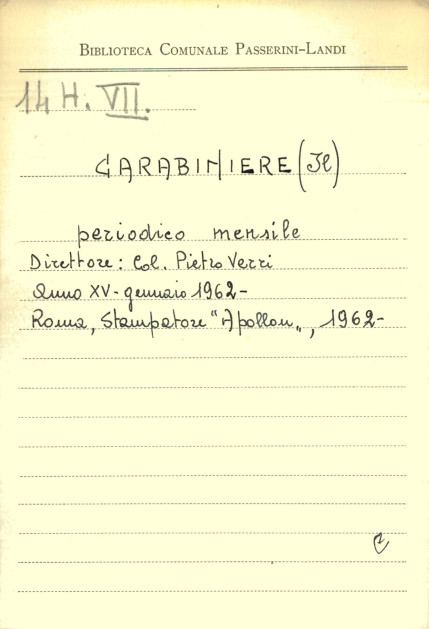 BIBLIOTECA COMUNALE PASSERINI-LANDI
14 H. VII.
CARABINIERE (Il)
periodico mensile
Direttore: Col. Pietro Verri
Anno XV - gennaio 1962 -
Roma, Stampatore "Apollon", 1962-